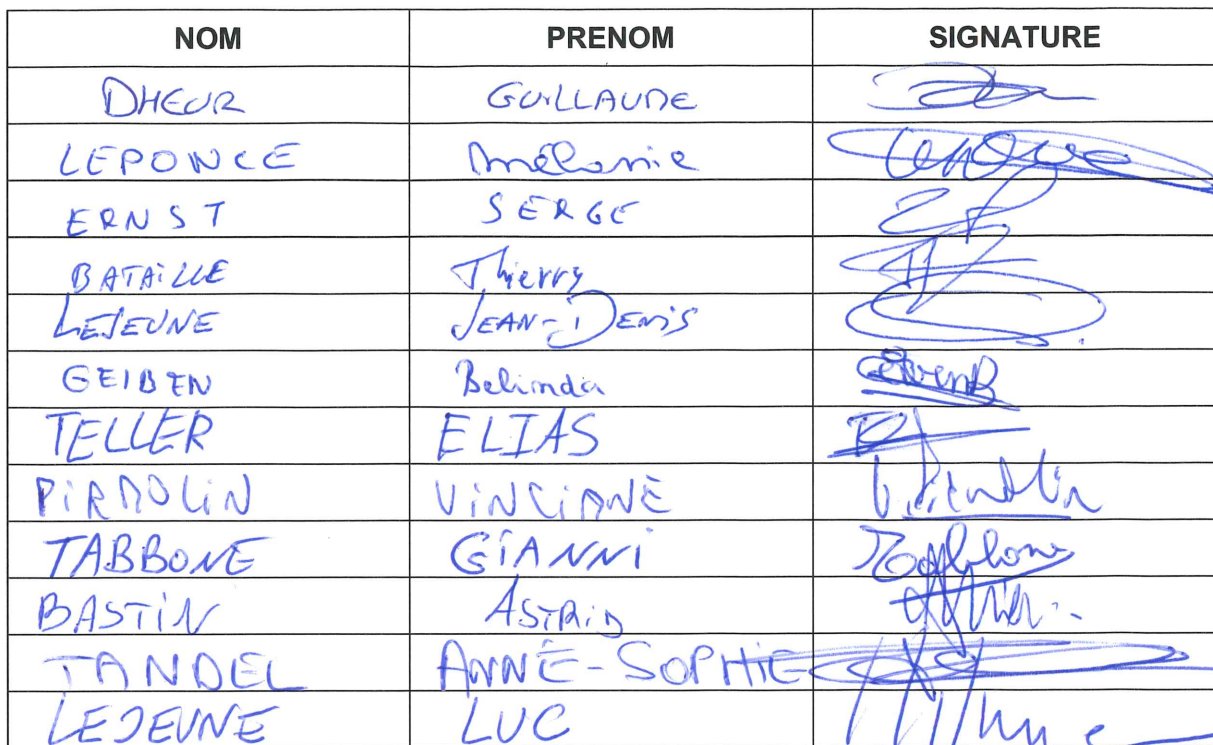 NOM PRENOM SIGNATURE
DHEUR GUILLAUME
LEPONCE Mélanie
ERNST SERGE
BATAILLE Thierry
LEJEUNE JEAN-DENIS
GEIBEN Belinda GeibenB
TELLER ELIAS
PIRMOLIN VINCIANE
TABBONE GIANNI Tabbone
BASTIN ASTRID
TANDEL ANNE-SOPHIE
LEJEUNE LUC